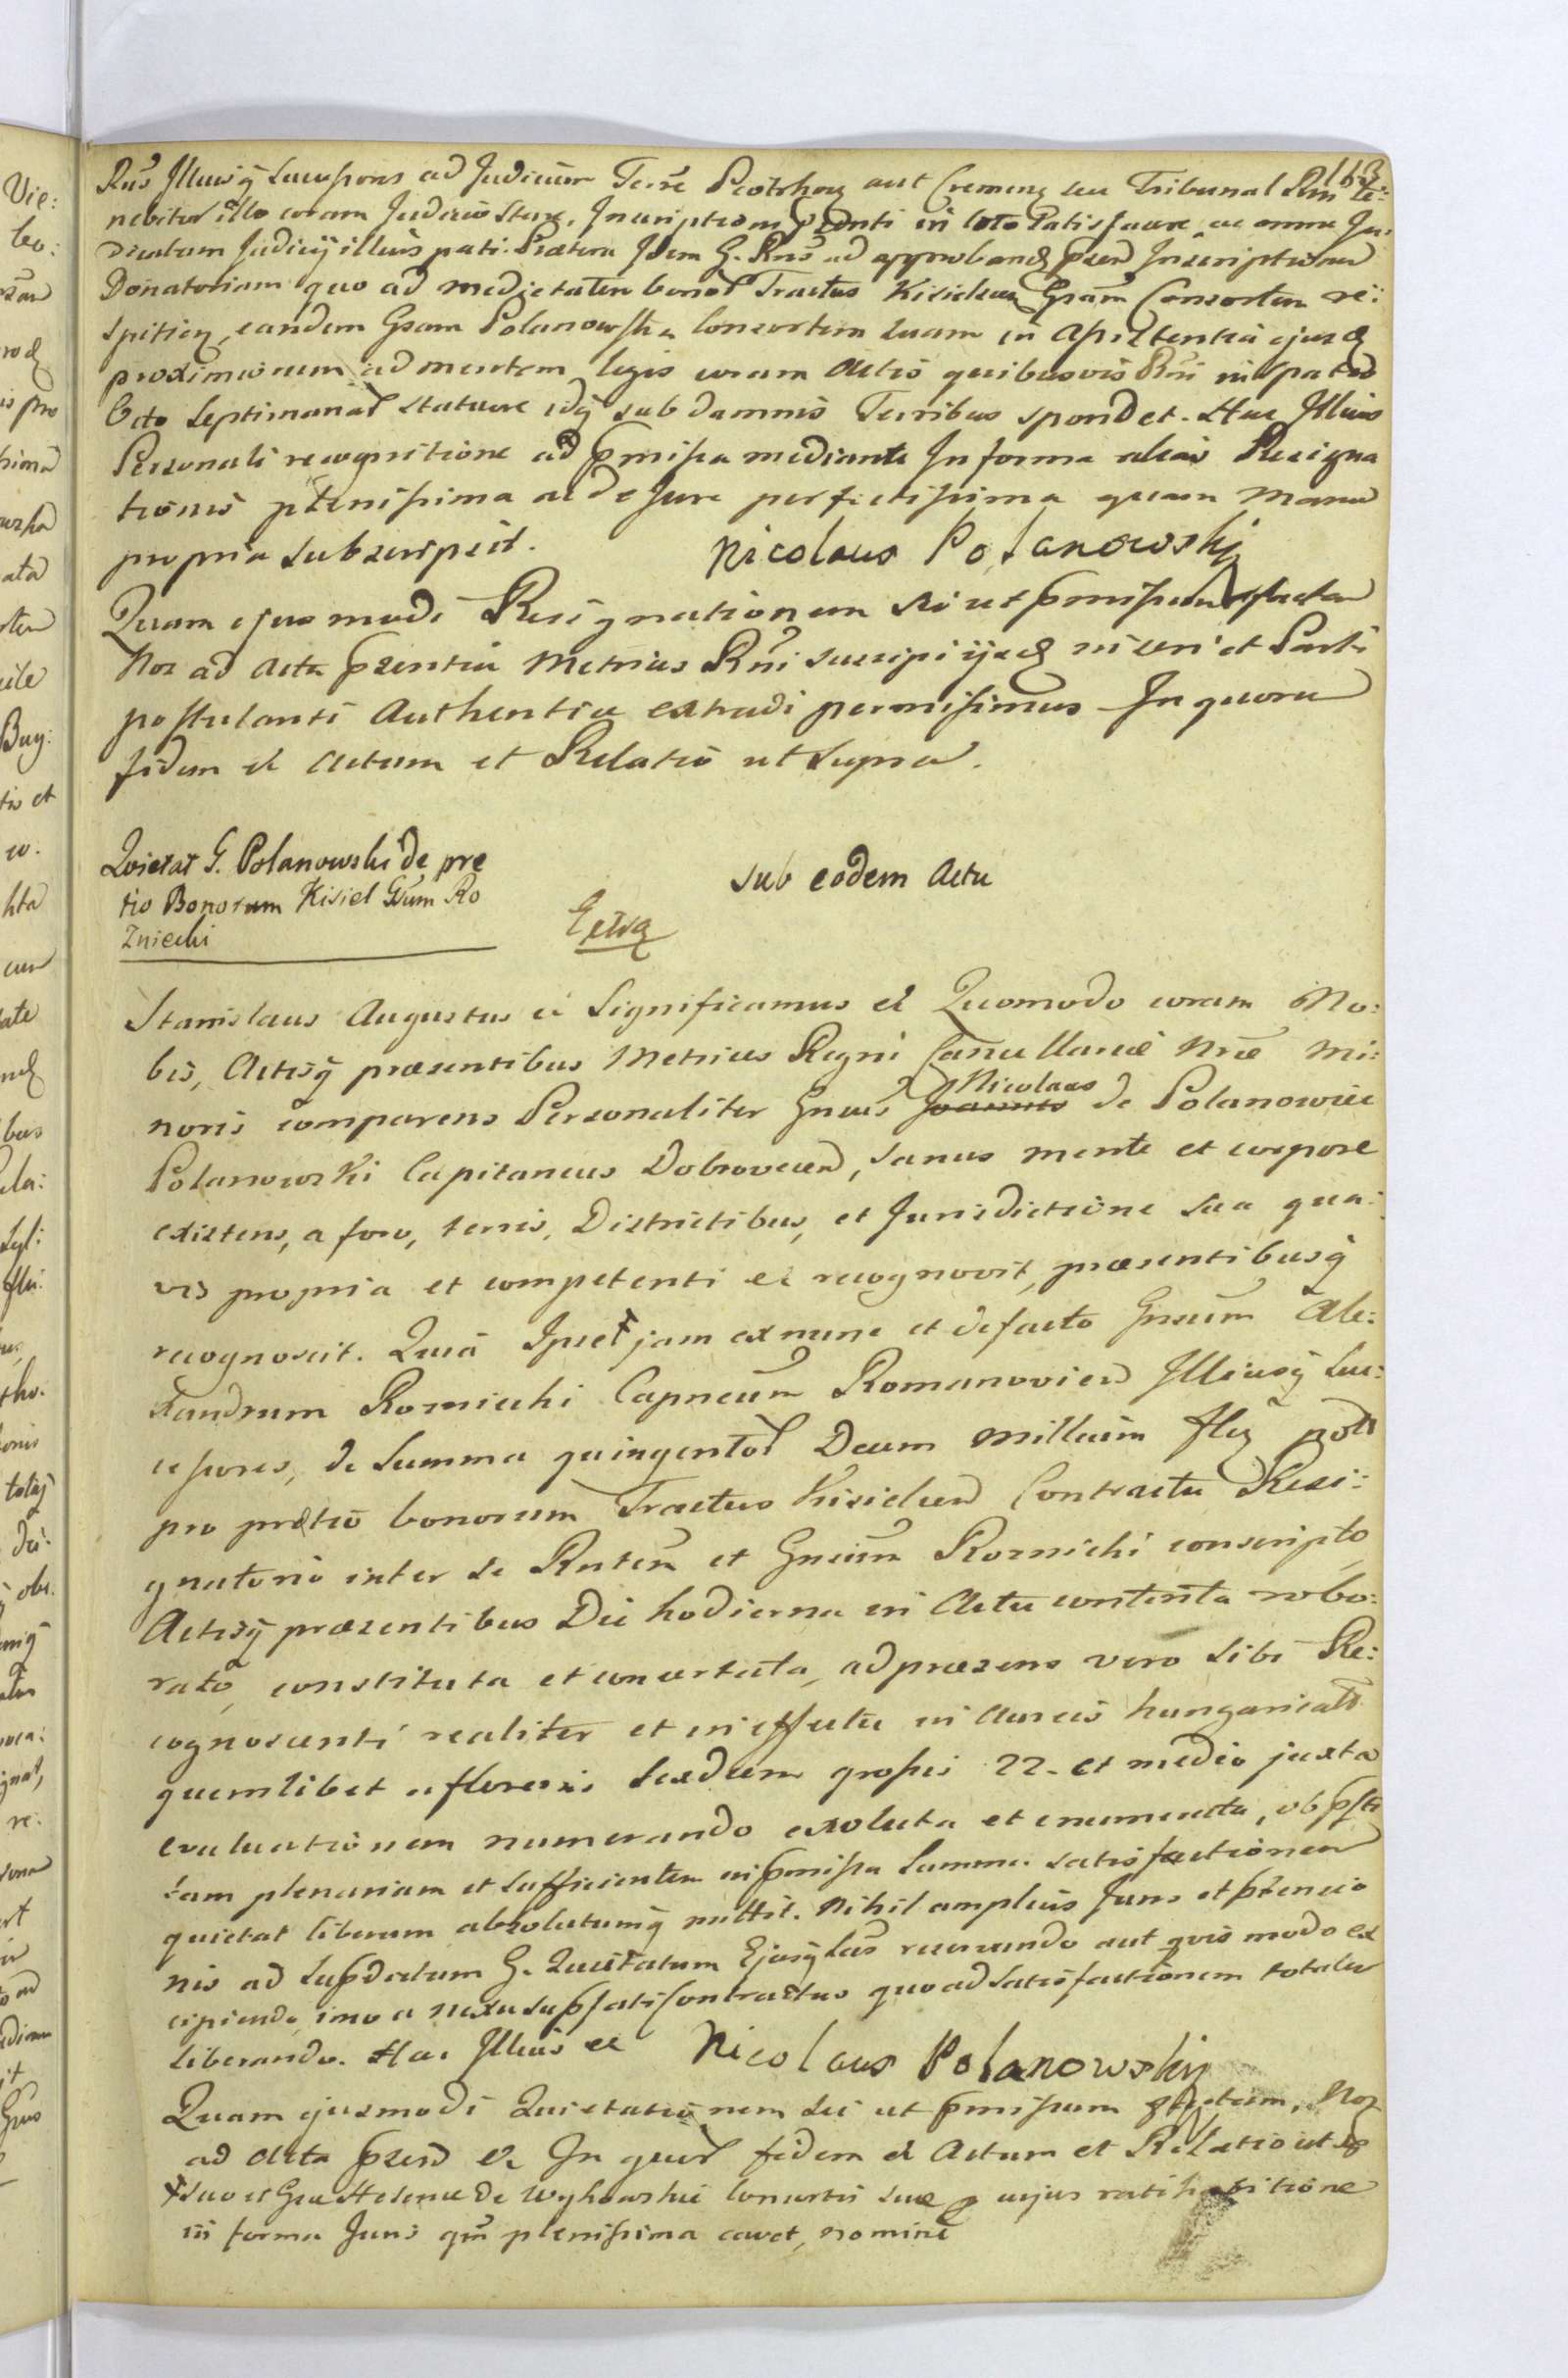 163
Rns Illiusq̃ Successores ad Judicium Terre aut Cremenẽ seu Tribunal Rni te:
nebitur illo coram Judicio stare, Inscriptioni pr̃nti in toto satisfacere ac omne Ju:
dicatum Judicij illius pati. Præterea Idem G. Rns ad approband pñem Inscriptionem
Donatoriam quo ad medietatem bonor Tractus Kisieleccen Gsam Consortem re:
spicien, eandem Gsam Polanowska Consortem suam in assistentia ejusd
proximiorum ad mentem legis coram Actis quibusvis Rni in spatio
Octo Septimanar statuere idq̃ sub damnis Terribus spondet. Hac Illius
Personali recognitione ad p̃missa mediante In forma alias Resigna
tionis plenissima ac de Jure perfectissima quam manu
propria subscripsit. Nicolaus Polanowskj
Quam ejusmodi Resignationem sic ut p̃missum est factam
Nos ad Acta p̃sentia Metrices Rñi suscipi ijsd inseri et Parti
postulanti Authentice extradi permisimus In quoru
fidem et Actum et Relatio ut Supra.
Quietat G. Polanowski de pre
tio Bonorum Kisiel Gsum Ro
Zniecki
sub eodem Actu
Stanislaus Augustus ec Significamus ec Quomodo coram No:
bis, Actisq̃ præsentibus Metrices Regni Cancellariæ Nrae Mi:
noris comparens Personaliter Gnus Joannes Nicolaus de Polanowice
Polanowski Capitaneus Dobrovecen, sanus mente et corpore
existens, a foro, terris, Districtibus, et Jurisdictione sua qua:
vis propria et competenti ec recognovit, præsentibusq̃
recognoscit. Quia Ipse ☨ jam ex nunc et defacto Gnsum Ale:
xandrum Rozniecki Capneum Romanovien Illiusq̃ Suc:
cessores, de Summa quingentor Decem millium flẽ polł
pro prætio bonorum Tractus Kisielcen Contractu Resi:
gnatorio inter se Rntem et Gnsum Rozniecki conscripto
Actisq̃ præsentibus Die hodierna in Actu contenta robo:
rato, constituta et concertata, ad præsens vero sibi Re:
cognoscenti realiter et in effectu in Aureis hungarical
quemlibet a florenis Sexdecem grossis 22. et medio juxta
evaluationem numerando exoluta et enumerata, ob p̃sti
tam plenariam et sufficientem in p̃missa Summa satisfactionem
quietat liberum absolutumq̃ mittit. Nihil amplius Juris et p̃tensio
nis ad Supdictum G. Quietatum Ejusq̃ Sucs reservando aut quovis modo ex
cipiendo, imo a nexu supsati Contractus quo ad satisfactionem totaliter
liberando. Hac Illius ec Nicolaus Polanowskij
Quam ejusmodi Quietationem sic ut p̃missum est factam, Nos
ad Acta p̃sen ec In quor fidem ec Actum et Relatio ut sa
☨ suo et Gsae Helenae de Wyhowskie Consortis suae p cujus ratihabitione
in forma Juris qm plenissima cavet, nomine